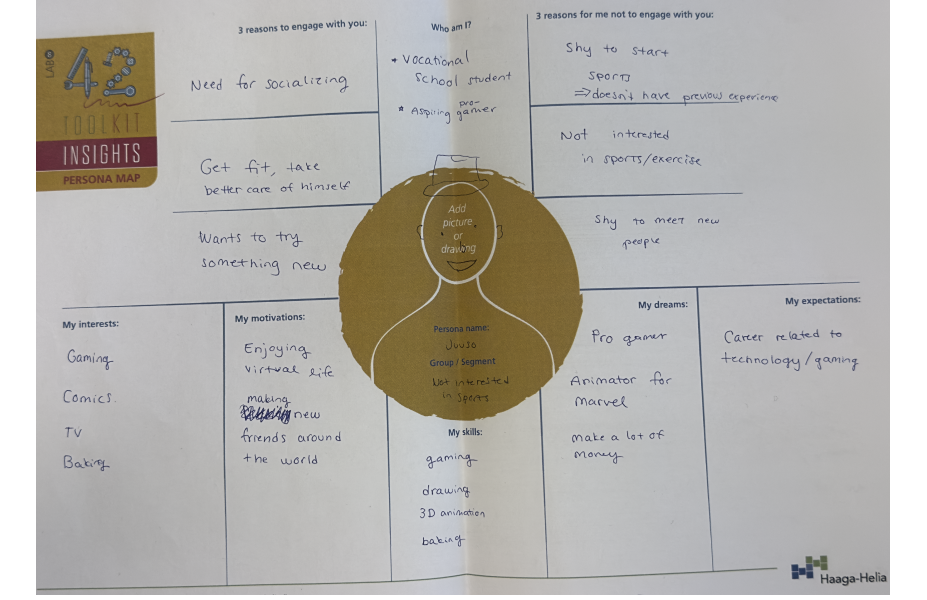 LAB
42
TOOLKIT
INSIGHTS
PERSONA MAP
3 reasons to engage with you:
Need for socializing
Get fit, take
better care of himself
Wants to try
something new
Who am I?
* Vocational
school student
* Aspiring pro-
gamer
3 reasons for me not to engage with you:
Shy to start
sports
⇒ doesn't have previous experience
Not interested
in sports/exercise
Shy to meet new
people
Add
picture
or
drawing
Persona name:
Juuso
Group / Segment
Not interested
in sports
My interests:
Gaming
Comics.
TV
Baking
My motivations:
Enjoying
virtual life
making
new
friends around
the world
My skills:
gaming
drawing
3D animation
baking
My dreams:
Pro gamer
Animator for
marvel
make a lot of
money
My expectations:
Career related to
technology/gaming
Haaga-Helia